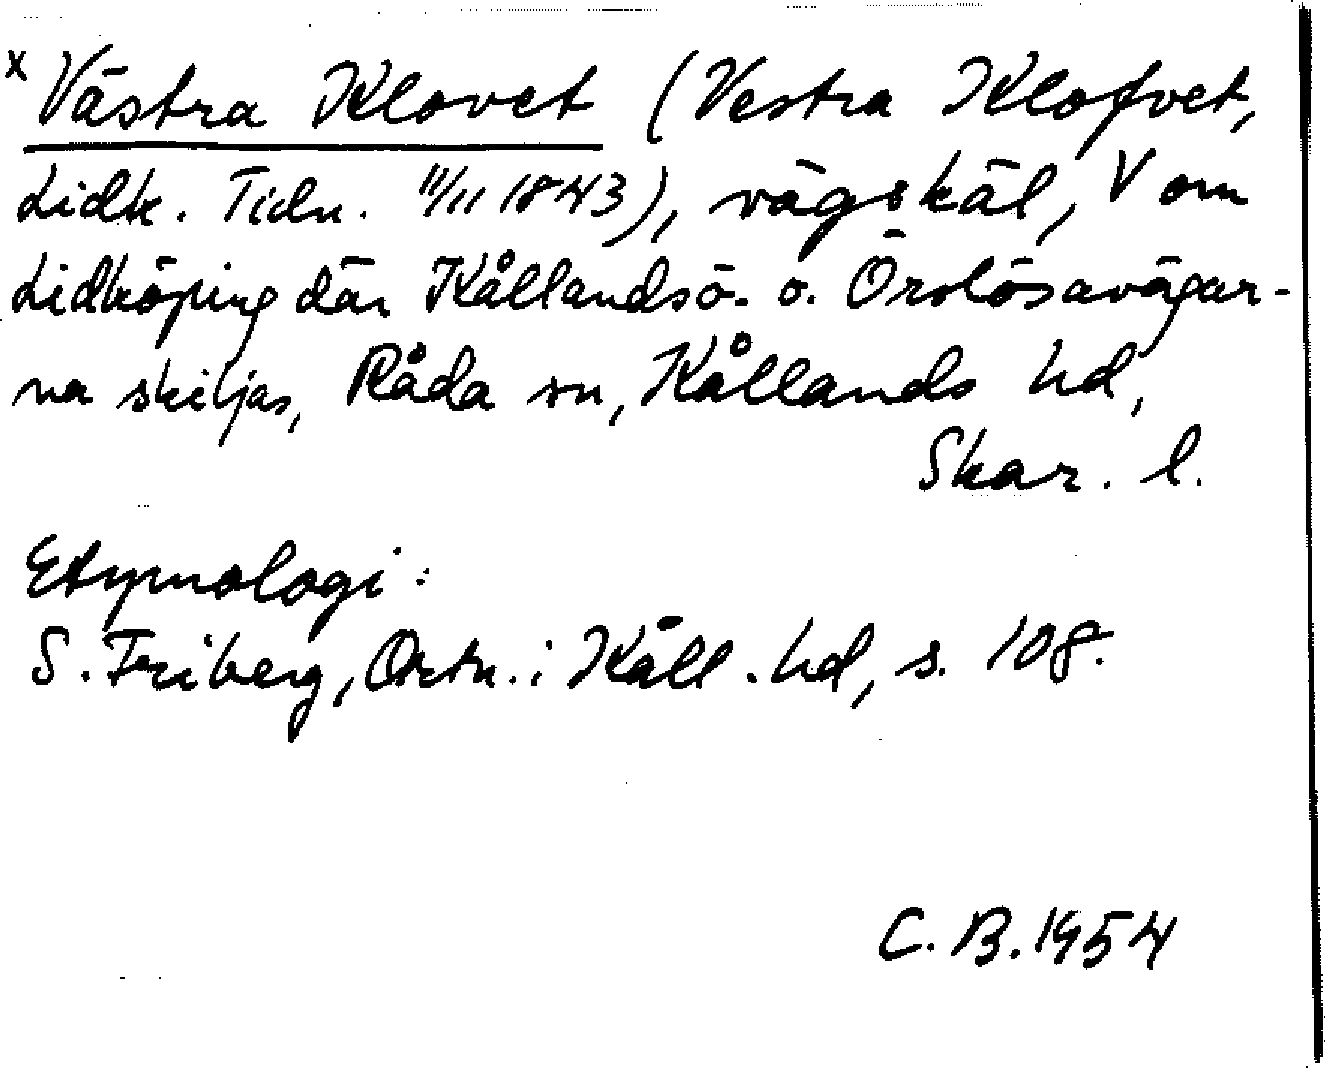 x Västra Klovet (Vestra Klofvet,
Lidk. Tidn. 11/11 1843), vägskäl, V om
Lidköping där Kållandsö- o. Örslösavägar-
na skiljas, Råda sn, Kållands hd,
Skar. l.
Etymologi:
S. Friberg, Ortn. i Kåll. hd, s. 108.
C. B. 1954